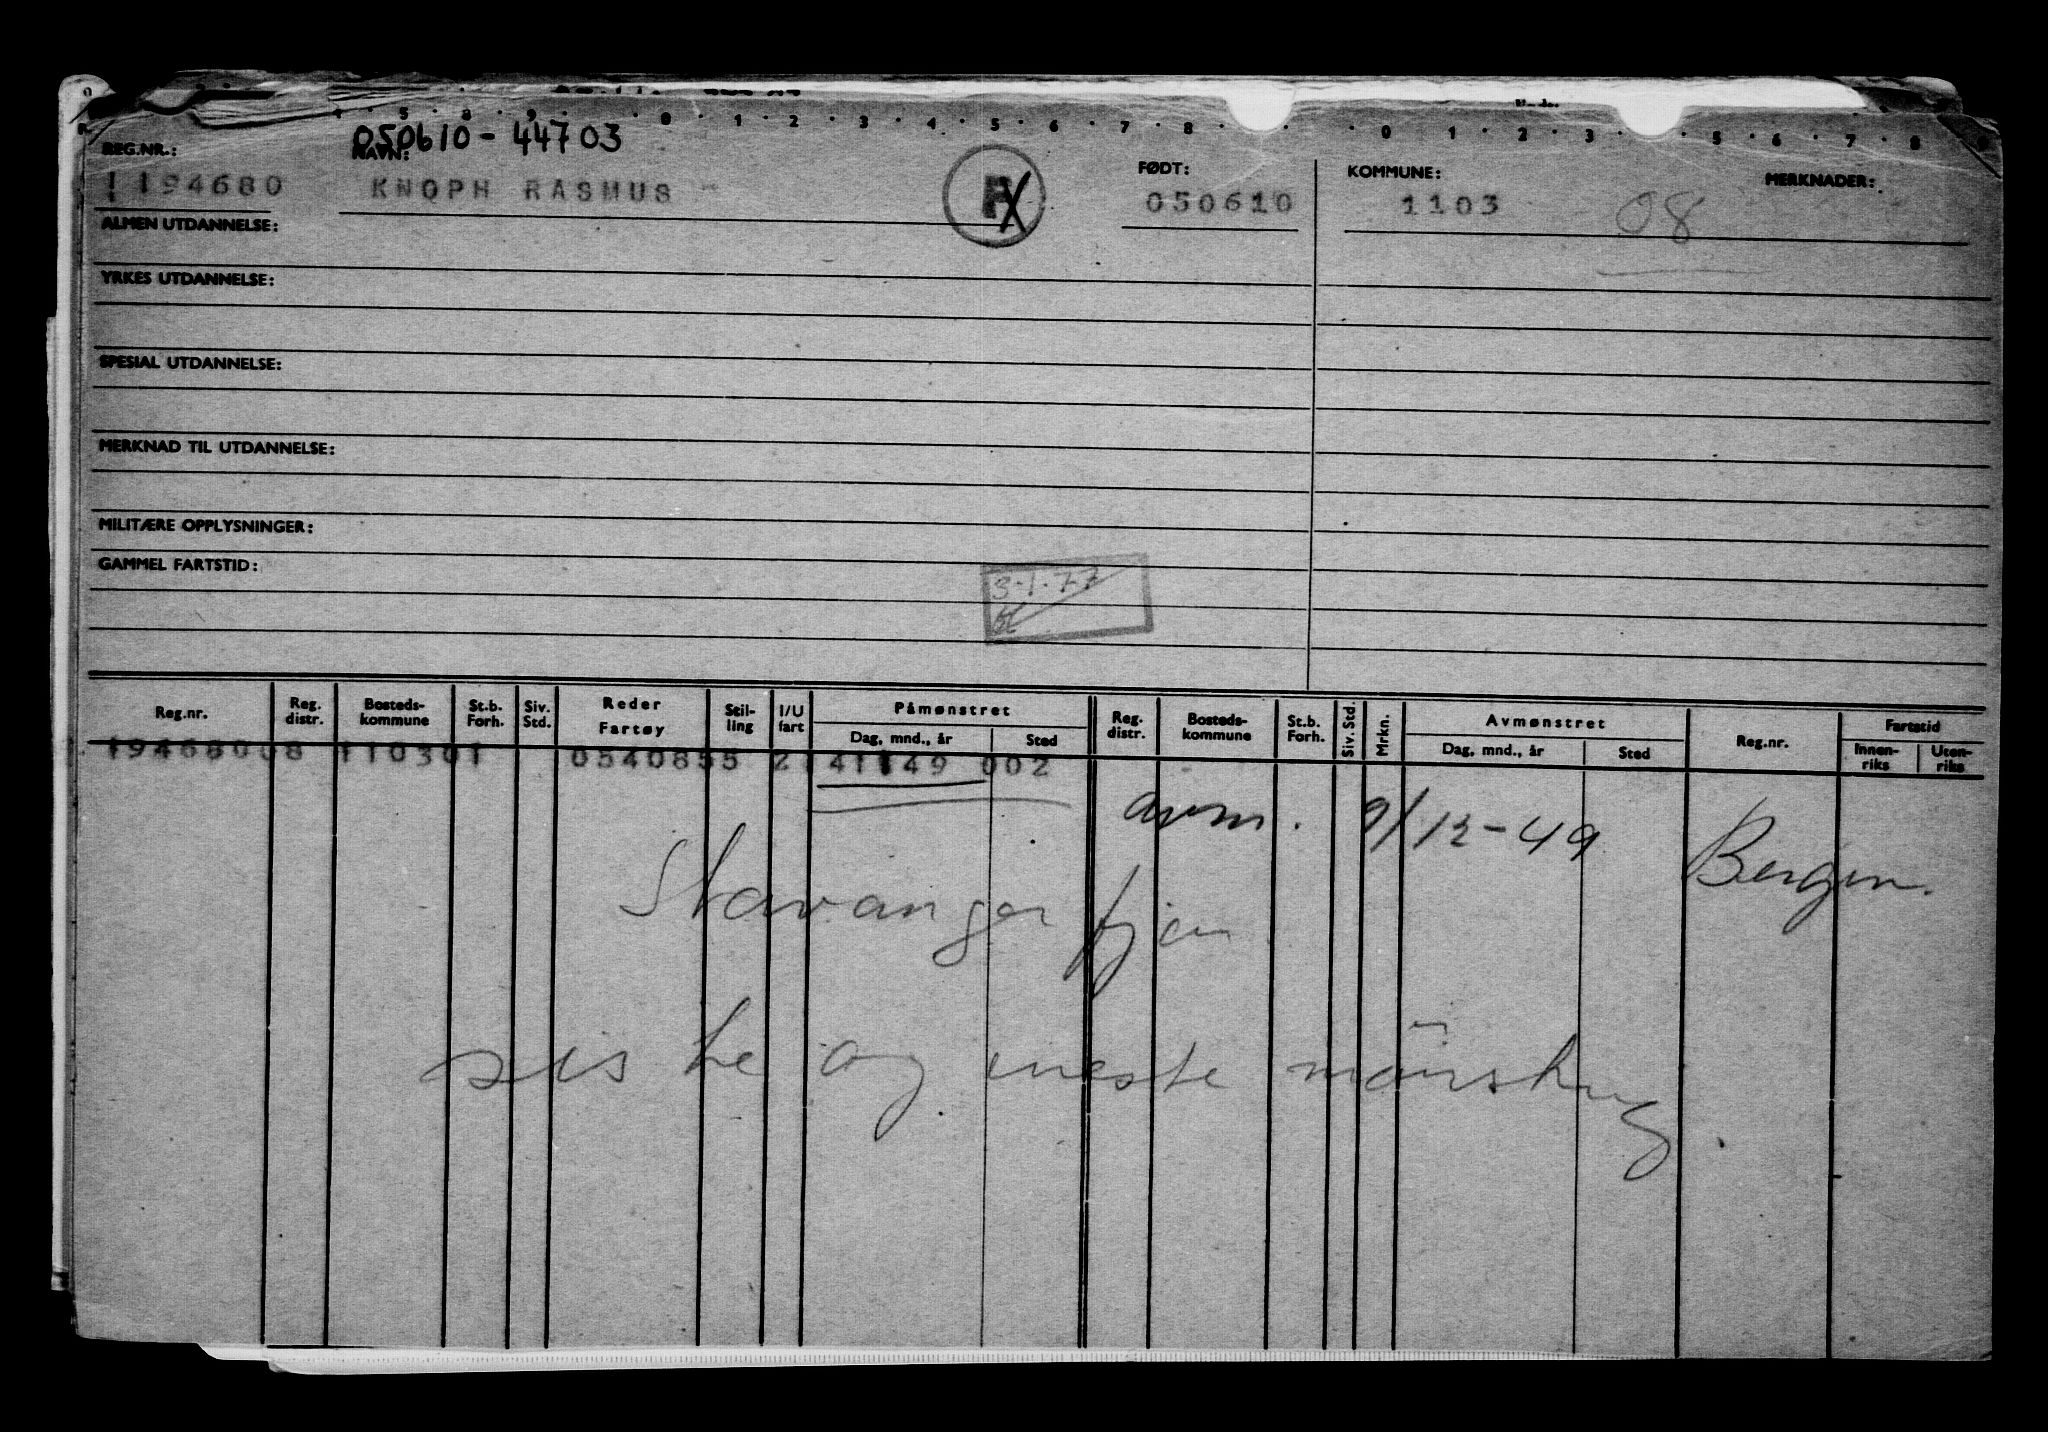 050610-44703
REG.NR.: NAVN: FØDT: KOMMUNE: MERKNADER:
1194680 KNOPH RASMUS F 050610 1103 08
ALMEN UTDANNELSE:
YRKES UTDANNELSE:
SPESIAL UTDANNELSE:
MERKNAD TIL UTDANNELSE:
MILITÆRE OPPLYSNINGER:
GAMMEL FARTSTID:
3-1-77
Reg.nr. Reg. distr. Bosteds-kommune St.b. Forh. Siv. Std. Reder Fartøy Stil-ling I/U fart Påmønstret Dag, mnd., år Sted Reg. distr. Bosteds-kommune St.b. Forh. Siv. Std. Mrkn. Avmønstret Dag, mnd., år Sted Reg.nr. Fartstid Innen-riks Uten-riks
19468008 110301 0540855 2 41149 002
avm. 9/12-49 Bergen.
Stavangerfjer
siste og neste mønstring.